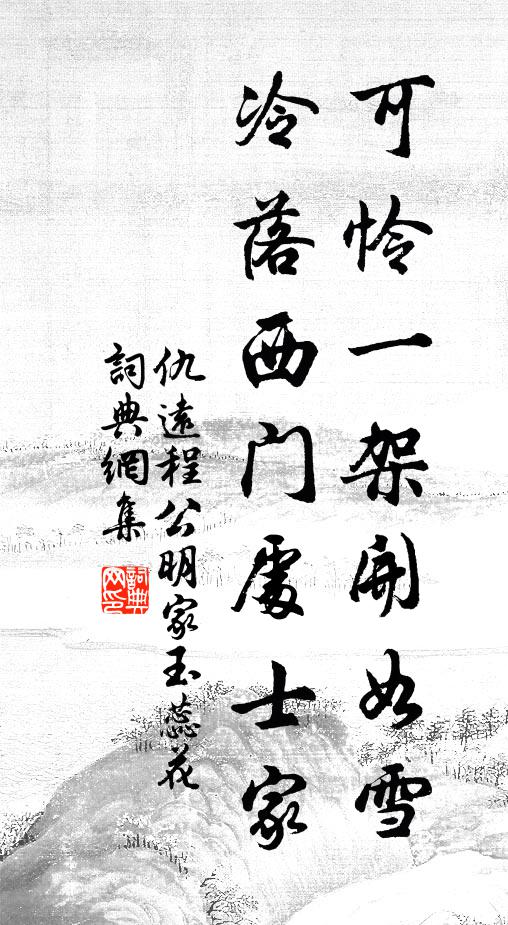 可怜一架開如雪
冷落西门處士家
仇遠程公明家玉蕊花
詞典網集
詞典网印